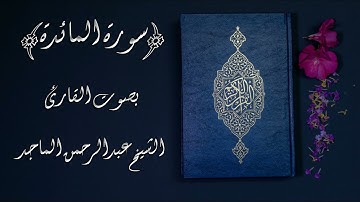 ﴿سورة المائدة﴾
بصوت القارئ
الشيخ عبدالرحمن الماجد
القرآن الكريم